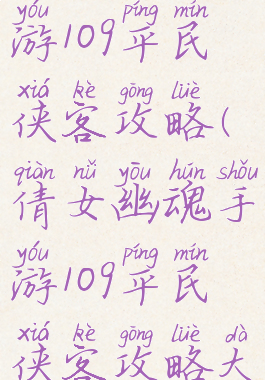 yóu píng mín
游109平民
xiá kè gōng lüè
侠客攻略(
qiàn nǚ yōu hún shǒu
倩女幽魂手
yóu píng mín
游109平民
xiá kè gōng lüè dà
侠客攻略大